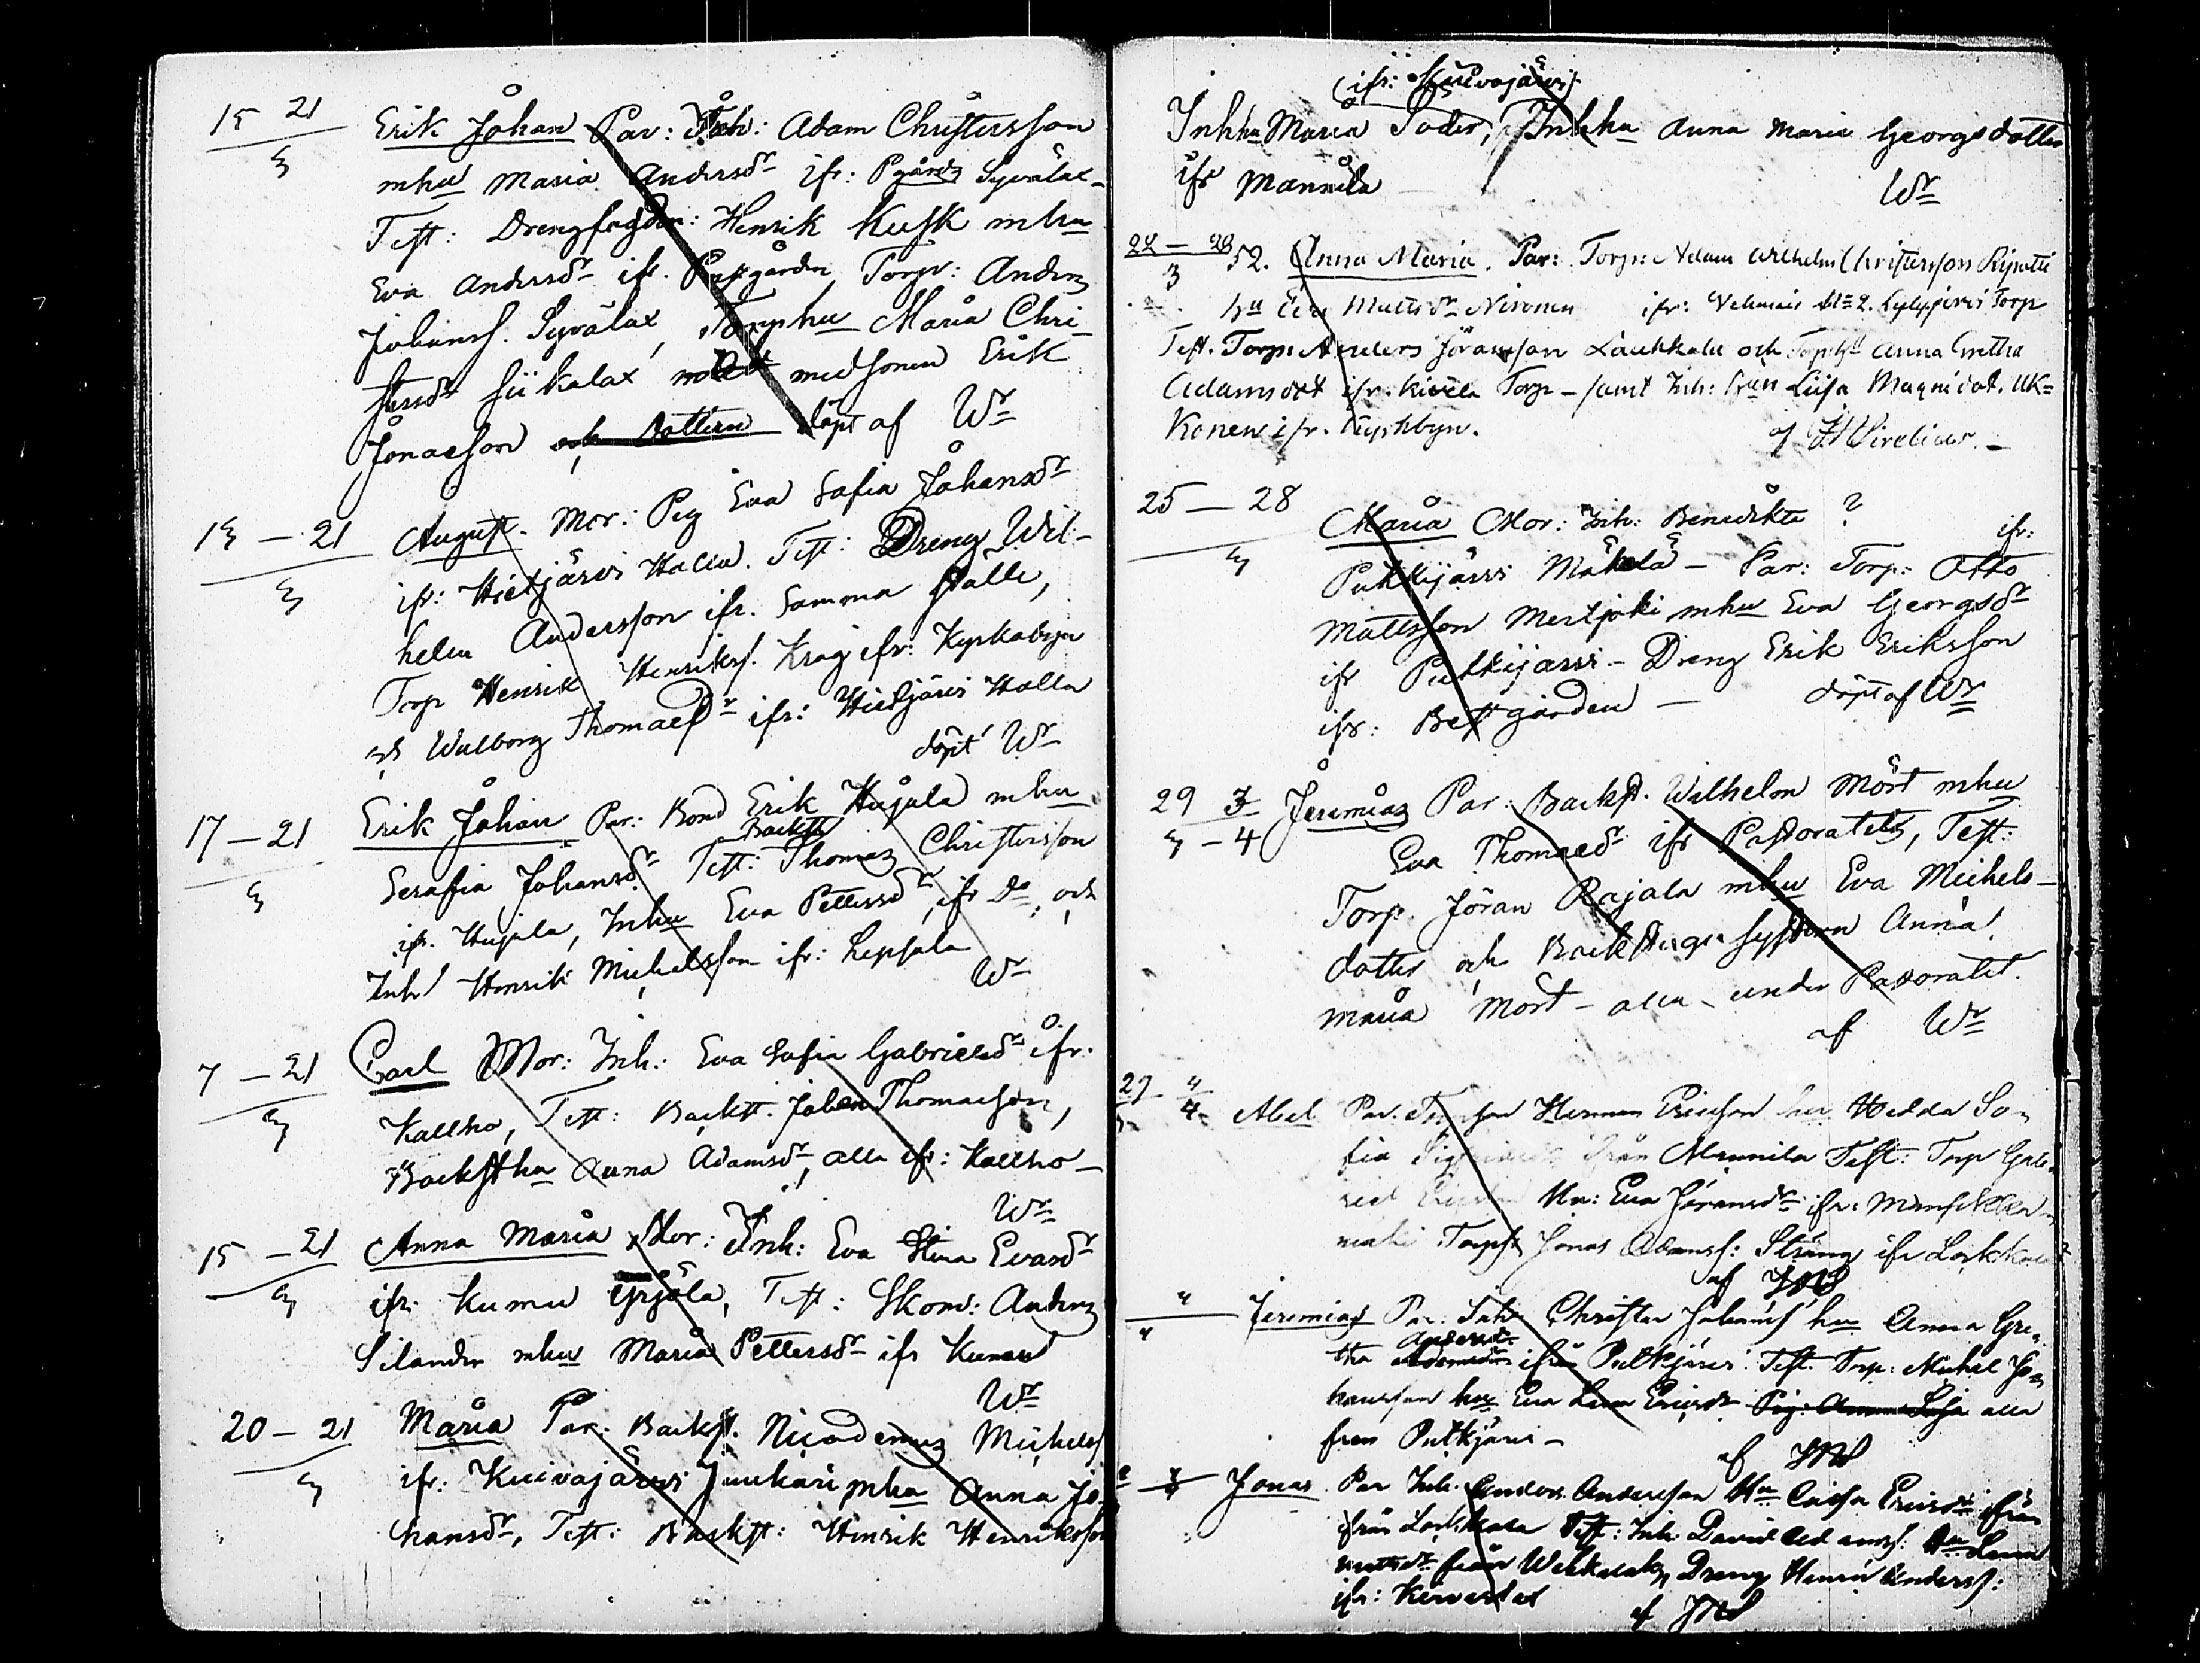 15 21 Erik Johan Par: Inh: Adam Christersson
3 mhu Maria Andersdr ifr: Pgårds Syvälax
Test: Drengfogden: Henrik Kusk mhu
Eva Andersdr ifr. Prestgården, Torpr: Anders
Johanss. Syvälax, Torphu Maria Chri-
stersdr Siikalax med sonen Erik
Jonaeson och dottern döpt af Wr
13 - 21 August. Mor: Pig Eva Safia Johansdr
3 ifr: Hietjärvi Halla. Test: Dreng Wil-
helm Andersson ifr. Samma ställe,
Torp Henrik Henrikss. Krag ifr: Kyrkobyn
och Walborg Thomaedr ifr: Hietjärvi Halla
döpt Wr
17 - 21 Erik Johan Par: Bond Erik Hujala mhu
Backst
3 Serafia Johansdr Test: Thomas Christersson
ifr. Hujala, Inhu Eva Pettersdr, ifr Do, och
Inh Henrik Michelsson ifr: Lepsala
Wr
7 - 21 Carl Mor: Inh: Eva Safia Gabrielsdr ifr:
3 Kallho, Test: Backst. Johan Thomaeson,
Backsthu Anna Adamsdr, alla ifr: Kallho -
Wr
15 - 21 Anna Maria Mor: Inh: Eva Stina Evasdr
3 ifr: Kumu Yrjölä, Test: Skom: Anders
Silander mhu Maria Pettersdr ifr Kumu
Wr
20 - 21 Maria Par: Backst. Nicodemus Michelss
3 ifr: Kuivajärvi Junkari mhu Anna Jo-
hansdr, Test: Backst: Henrik Henriksson
(ifr: Kuivajärvi)
Inhhu Maria Söder, Inhhu Anna Maria Georgsdotter
ifr Mannila
Wr
22 - 28 52. Anna Maria. Par: Torp: Adam Wilhelm Christersson Ripatti
3 hu Eva Mattsdr Nironen ifr: No 2. Torp
Test. Torp: Anders Jöransson Laukkala och Anna Gretha
Adamsdot ifr. Kivelä Torp - samt Inh: hun Liisa Magnidot. Uk=
Konen ifr. Kyrkbyn.
af
25 - 28 Maria Mor: Inh: Benedikta ? ifr:
3 Putkijärvi Mäkelä - Par: Torp: Otto
Mattsson Mertjoki mhu Eva Georgsdr
ifr Putkijärvi - Dreng Erik Eriksson
ifr: Prestgården - döpt af Wr
29 3 Jeremias Par: Backst. Wilhelm Mört mhu
3 - 4 Eva Thomaedr ifr Pastoratet, Test:
Torp. Jöran Rajala mhu Eva Michels-
dotter och Backstugu systern Anna
Maria Mört - alla under Pastoratet.
af Wr
27 4 Abel Par. Herman Ericsson hu Hedda So-
fia ifrån Mannila Test: Torp Gab-
riel Hu: Eva Göransdr ifr:
Torp Jonas Adamss: Sträng ifr
af
4 Jeremias Par: Inh Christer Johanss hu Anna Gre-
Andersdr
tha ifrån Putkjärvi Test. Torp: Michel Jo-
hansson hu Eva Lena Ericsdr Pig: Anna Lisa alla
från Putkjärvi -
af
Jonas. Par Inh. Anders Andersson Hu Caisa Ericsdr ifrån
ifrån Test: Inh David Adamss: Hu Lena
Mattsdr från Dreng Henric Anderss:
ifr:
af